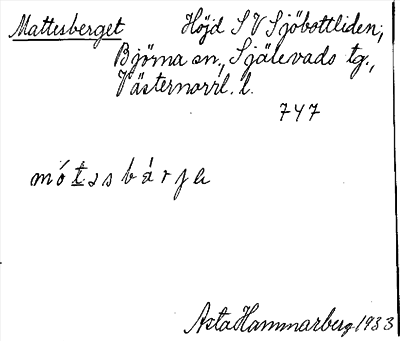 Mattesberget Höjd S V Sjöbottliden,
Björna sn., Själevads tg.,
Västernorrl. l.
747
Asta Hammarberg 1933